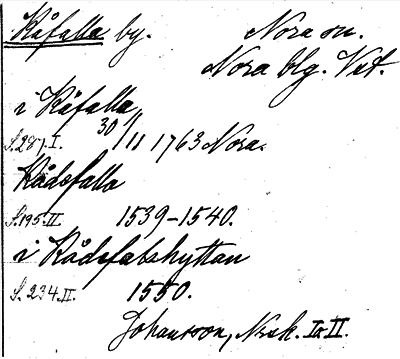 Kåfalla by. Nora sn.
Nora blg. Vstm.
i Kåfalla
S. 287. I. 30/11 1763 Nora.
Kådsfalla
S. 195. II. 1539-1540.
i Kådsfalshyttan
S. 234. II. 1550.
Johansson, Norask. I o. II.